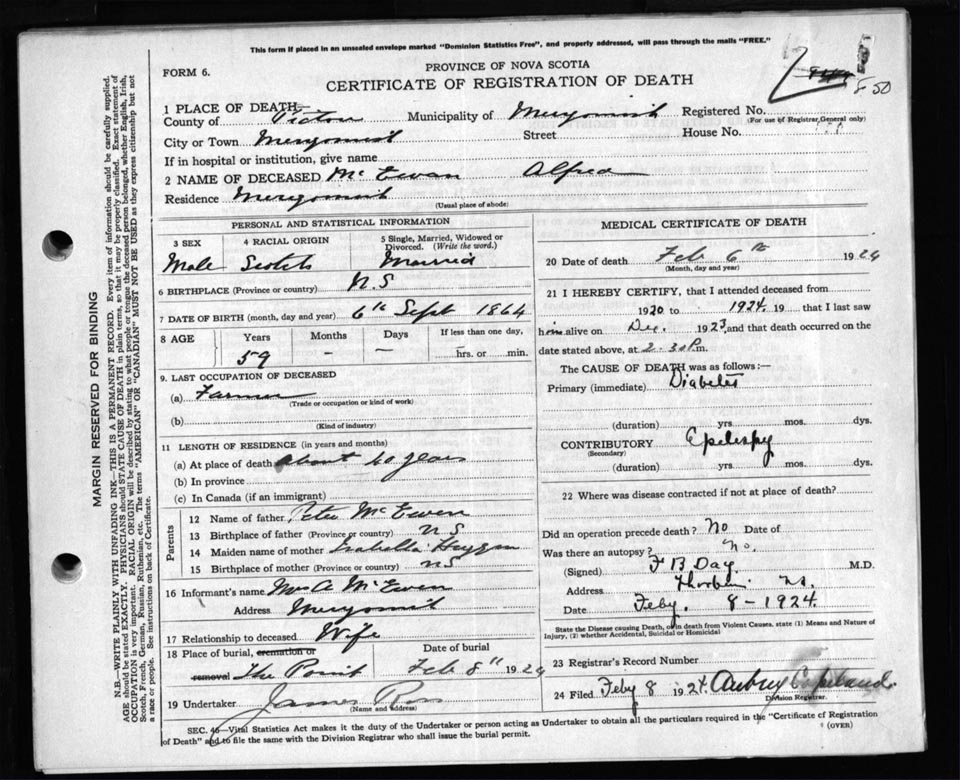 This form if placed in an unsealed envelope marked "Dominion Statistics Free", and properly addressed, will pass through the mails "FREE."
FORM 6.
PROVINCE OF NOVA SCOTIA
CERTIFICATE OF REGISTRATION OF DEATH
850
1 PLACE OF DEATH—
County of Pictou Municipality of Merigomish Registered No.
(For use of Registrar General only)
City or Town Merigomish Street House No.
If in hospital or institution, give name
2 NAME OF DECEASED McEwan Alfred
Residence Merigomish
(Usual place of abode)
PERSONAL AND STATISTICAL INFORMATION
3 SEX 4 RACIAL ORIGIN 5 Single, Married, Widowed or Divorced. (Write the word.)
Male Scotch Married
6 BIRTHPLACE (Province or country) N.S
7 DATE OF BIRTH (month, day and year) 6th Sept 1864
8 AGE Years Months Days If less than one day,
59 – – hrs. or min.
9. LAST OCCUPATION OF DECEASED
(a) Farmer
(Trade or occupation or kind of work)
(b)
(Kind of industry)
11 LENGTH OF RESIDENCE (in years and months)
(a) At place of death about 60 years
(b) In province
(c) In Canada (if an immigrant)
Parents
12 Name of father Peter McEwen
13 Birthplace of father (Province or country) NS
14 Maiden name of mother Isabella
15 Birthplace of mother (Province or country) NS
16 Informant's name Mrs A McEwen
Address Merigomish
17 Relationship to deceased Wife
18 Place of burial, cremation or removal Date of burial
The Point Feb 8th 1924
19 Undertaker James Ross
(Name and address)
MEDICAL CERTIFICATE OF DEATH
20 Date of death Feb 6th 1924
(Month, day and year)
21 I HEREBY CERTIFY, that I attended deceased from
1920 to 1924. 19 that I last saw
him alive on Dec. 1923, and that death occurred on the
date stated above, at 2-30 P.m.
The CAUSE OF DEATH was as follows:—
Primary (immediate) Diabetes
(duration) yrs mos. dys.
CONTRIBUTORY Epilepsy
(Secondary)
(duration) yrs. mos. dys.
22 Where was disease contracted if not at place of death?
Did an operation precede death? No Date of
Was there an autopsy? No.
(Signed) F B Day. M.D.
Address Thorburn NS.
Date Feby. 8 - 1924.
State the Disease causing Death, or in death from Violent Causes, state (1) Means and Nature of
Injury, (2) whether Accidental, Suicidal or Homicidal
23 Registrar's Record Number
24 Filed Feby 8 1924. Aubrey Copeland.
Division Registrar.
SEC. 46—Vital Statistics Act makes it the duty of the Undertaker or person acting as Undertaker to obtain all the particulars required in the "Certificate of Registration
of Death" and to file the same with the Division Registrar who shall issue the burial permit.
(OVER)
MARGIN RESERVED FOR BINDING
N.B.—WRITE PLAINLY WITH UNFADING INK—THIS IS A PERMANENT RECORD. Every item of information should be carefully supplied.
AGE should be stated EXACTLY. PHYSICIANS should STATE CAUSE OF DEATH in plain terms, so that it may be properly classified. Exact statement of
OCCUPATION is very important. RACIAL ORIGIN will be described by stating to what people or tongue the deceased person belonged, whether English, Irish,
Scotch, French, German, Russian, Ruthenian, etc. The terms "AMERICAN" or "CANADIAN" MUST NOT BE USED as they express citizenship but not
a race or people. See instructions on back of Certificate.